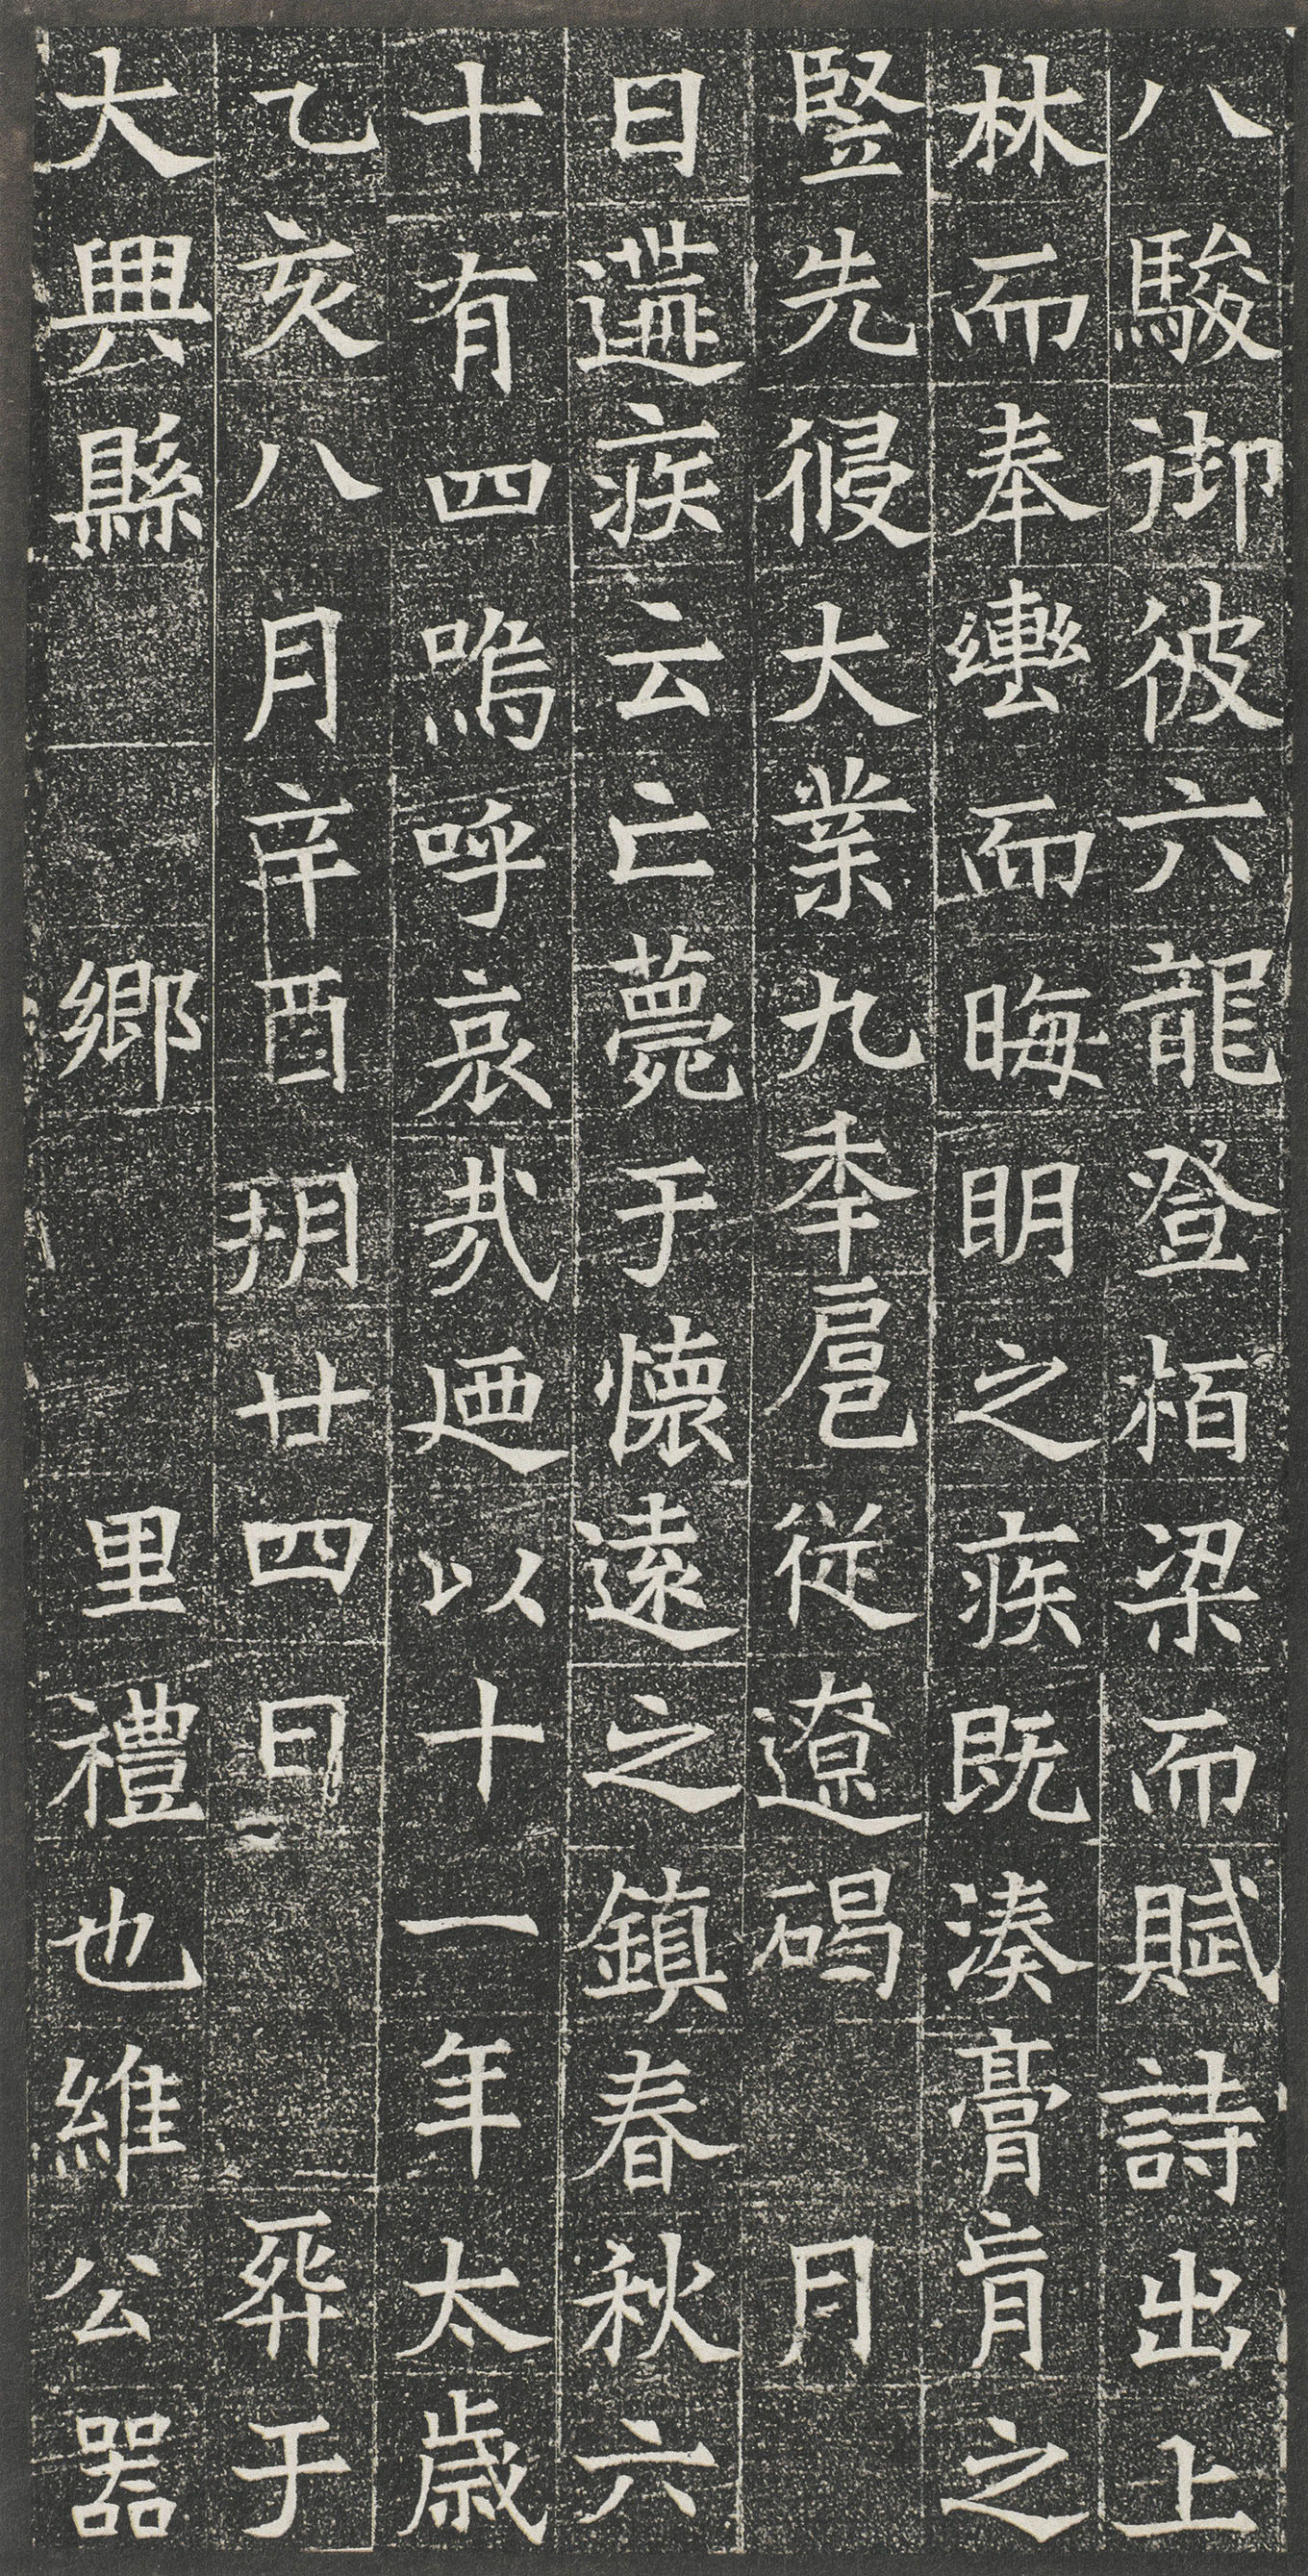 八駿御彼六龍登栢梁而賦詩出上
林而奉轡而晦明之疾既湊膏肓之
豎先侵大業九秊扈從遼碣月
日遘疾云亡薨于懷遠之鎮春秋六
十有四嗚呼哀哉迺以十一年太歲
乙亥八月辛酉朔廿四日葬于
大興縣鄉里禮也維公器